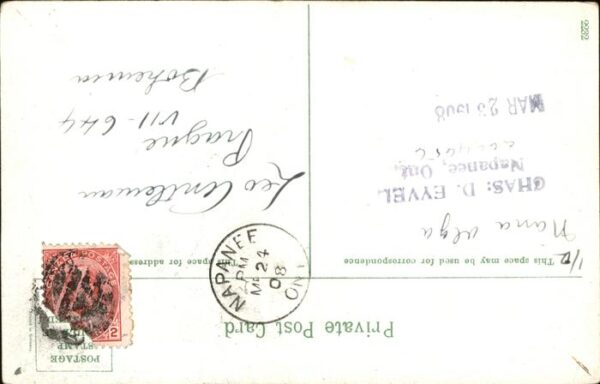 Private Post Card
POSTAGE
STAMP
This space may be used for correspondence
This space for address
NAPANEE
PM
MR 24
08
ONT
2
1/2
Nana Olga
CHAS: D. EYVEL
Napanee, Ont.
MAR 23 1908
Leo Centleman
Prague
VII - 644
Bohemia